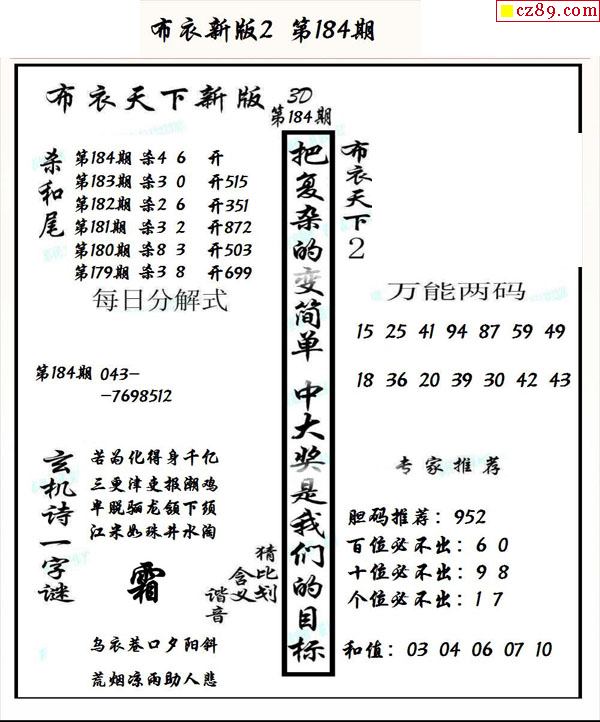 cz89.com
布衣新版2 第184期
布衣天下新版
3D
第184期
杀和尾
第184期 杀4 6 开
第183期 杀3 0 开515
第182期 杀2 6 开351
第181期 杀3 2 开872
第180期 杀8 3 开503
第179期 杀3 8 开699
每日分解式
第184期 043-
-7698512
玄机诗一字谜
苦为化得身千亿
三更津吏报潮鸡
半脱骊龙颔下须
江米如珠井水淘
霜
猜比划
含义
谐音
乌衣巷口夕阳斜
荒烟凉雨助人悲
把复杂的变简单 中大奖是我们的目标
布衣天下2
万能两码
15 25 41 94 87 59 49
18 36 20 39 30 42 43
专家推荐
胆码推荐：952
百位必不出：6 0
十位必不出：9 8
个位必不出：1 7
和值：03 04 06 07 10